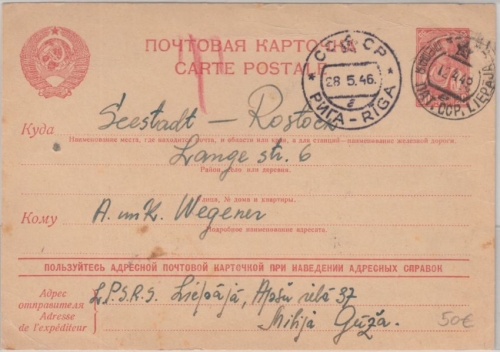 ПОЧТОВАЯ КАРТОЧКА
CARTE POSTALE
СССР
28.5.46.
РИГА-RIGA
ЛАТ. ССР. LIEPAJA
Куда
Seestadt - Rostock
Наименование места, где находится почта, и области или края, а для станций - наименование железной дороги.
Lange str. 6
Район, село или деревня.
Улица, № дома и квартиры.
Кому
A. und K. Wegener
Подробное наименование адресата.
ПОЛЬЗУЙТЕСЬ АДРЕСНОЙ ПОЧТОВОЙ КАРТОЧКОЙ ПРИ НАВЕДЕНИИ АДРЕСНЫХ СПРАВОК
Адрес отправителя
Adresse de l'expéditeur
L.P.S.R.S. Liepājā, Apšu ielā 37
Milija Gūža.
50€